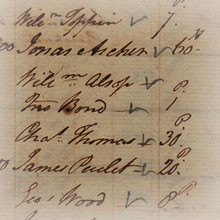 Will.m Tippin 7.
00 Jonas Archer 60
Will.m Alsop
Jno Bond 1
P.
Cha.s Thomas 30.
P.
0 James Peulet 20.
P.
Geo: Wood 8